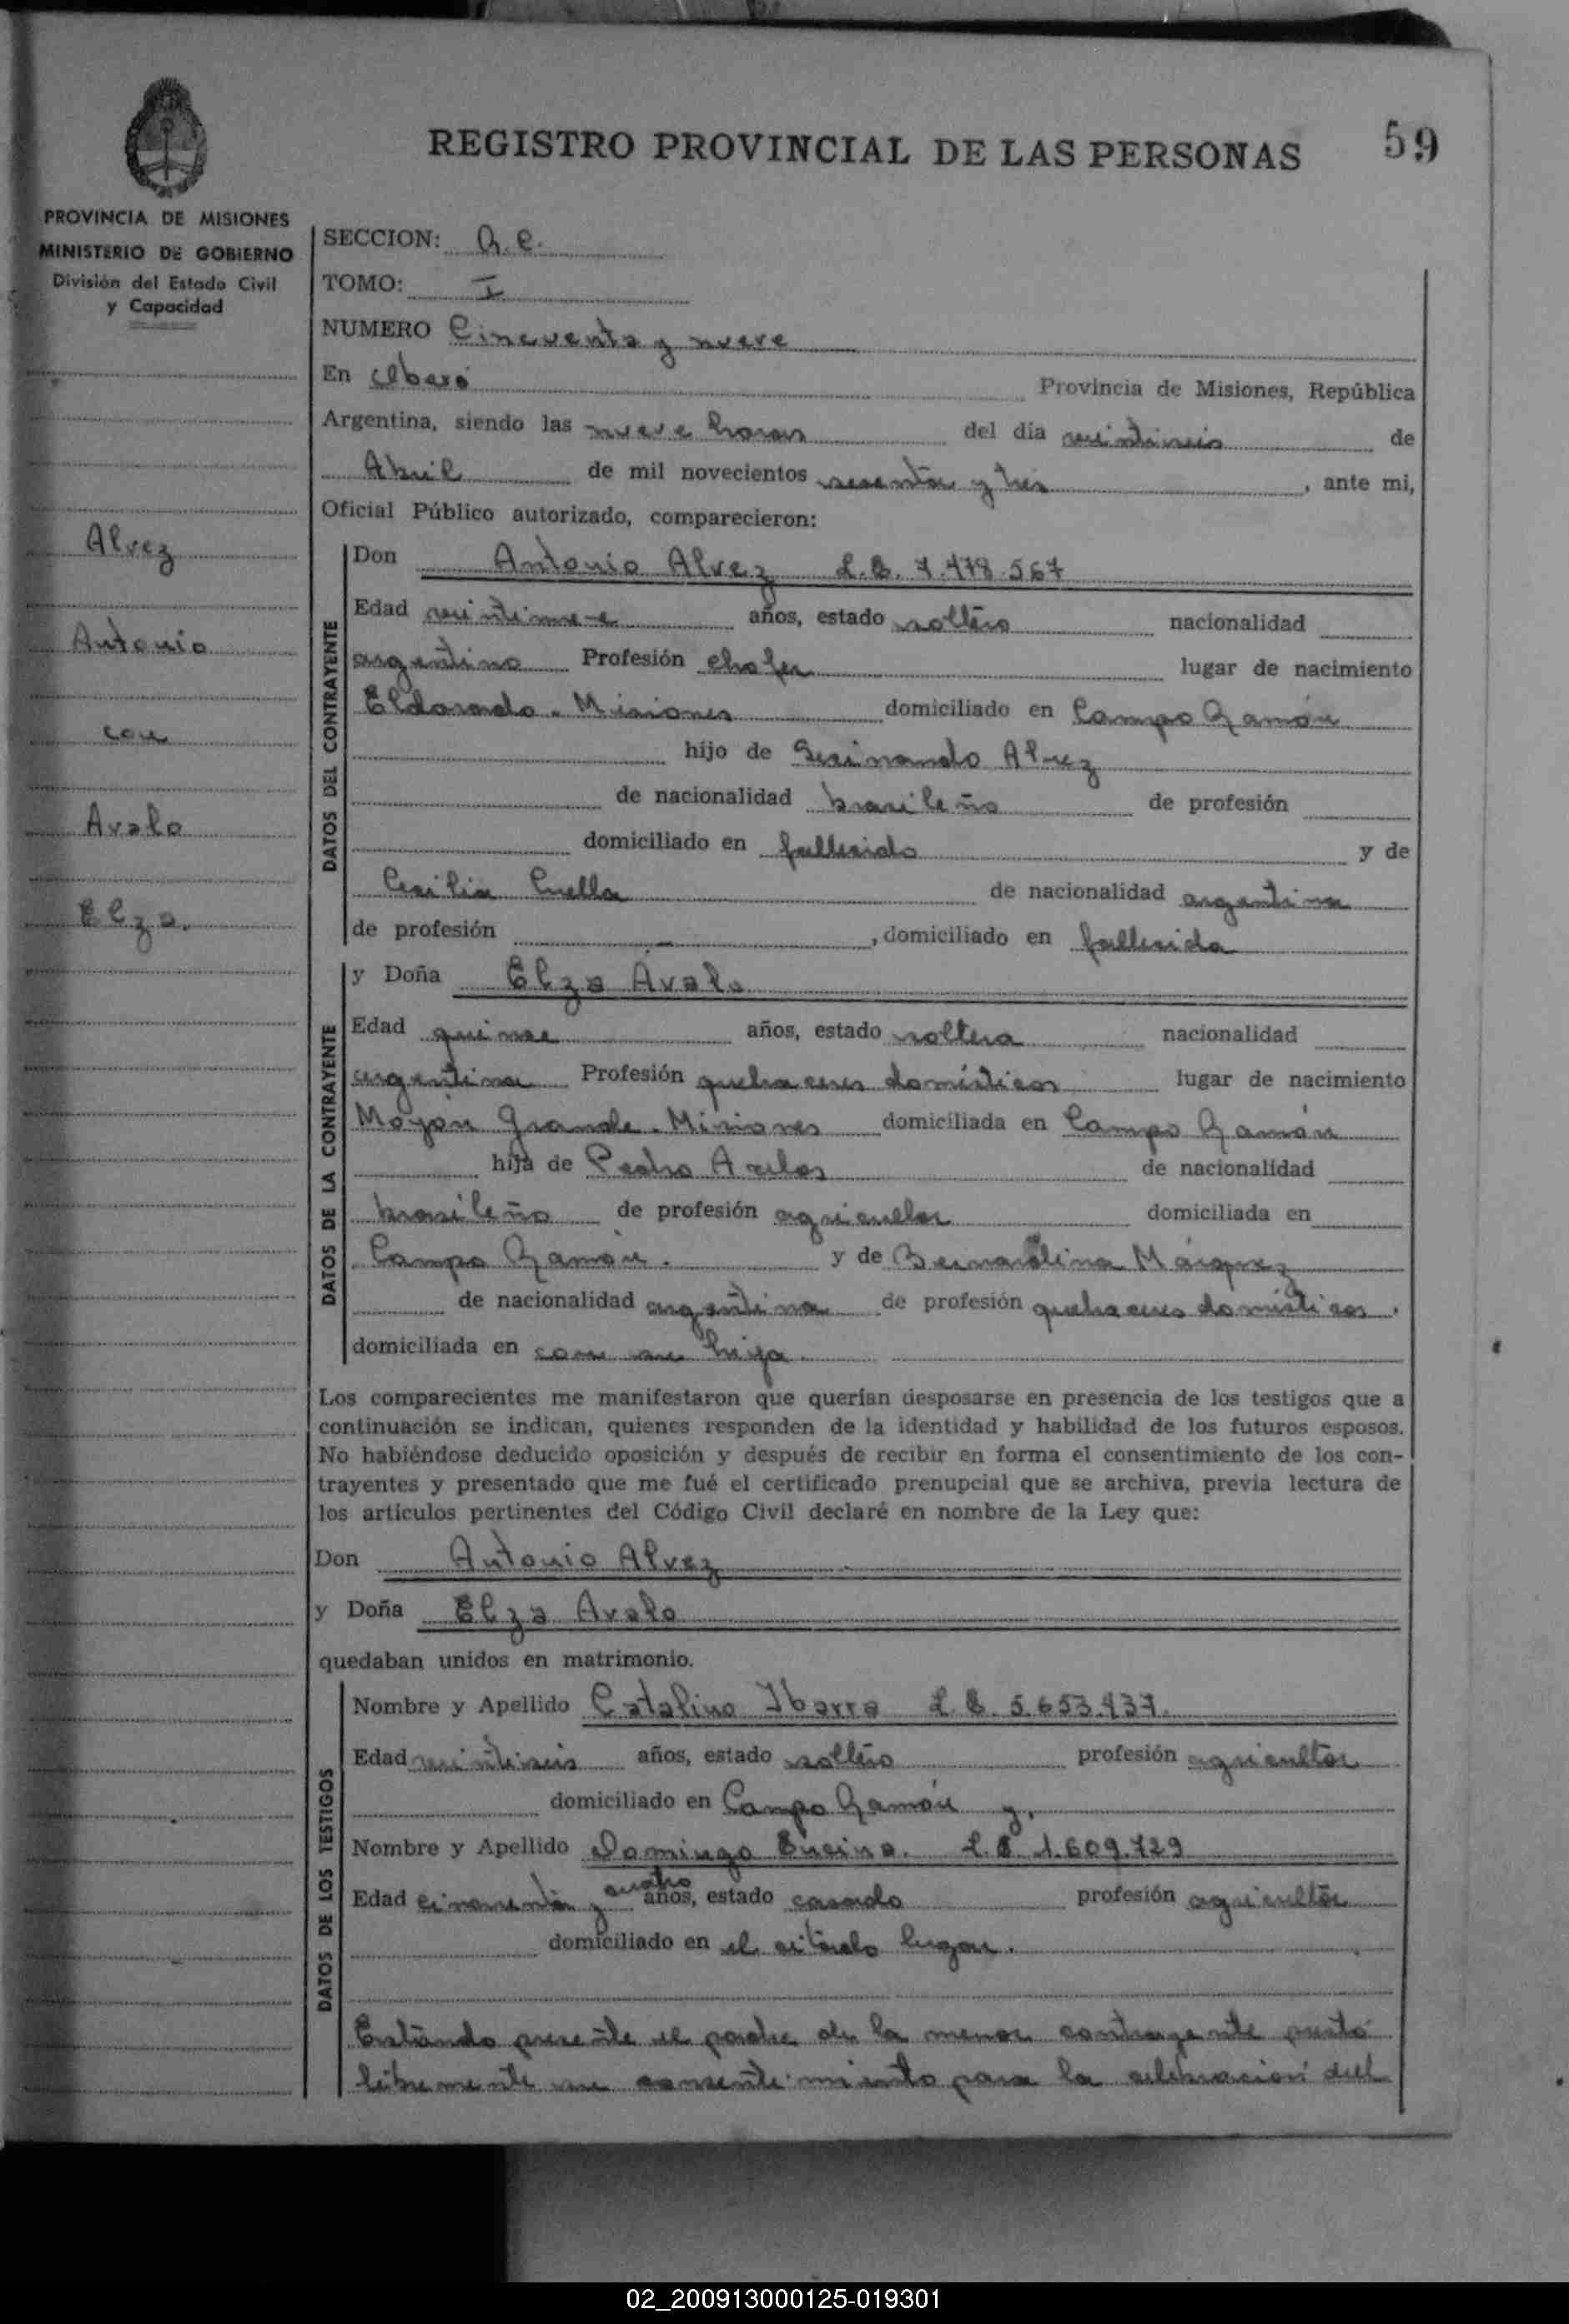 REGISTRO PROVINCIAL DE LAS PERSONAS
59
PROVINCIA DE MISIONES
MINISTERIO DE GOBIERNO
División del Estado Civil
y Capacidad
Alvez
Antonio
con
Avalo
Elza.
SECCION:
TOMO: I
NUMERO Cincuenta y nueve
En Oberá Provincia de Misiones, República
Argentina, siendo las nueve horas del día veintiseis de
Abril de mil novecientos sesenta y tres, ante mi,
Oficial Público autorizado, comparecieron:
DATOS DEL CONTRAYENTE
Don Antonio Alvez L.E. 7.478.567
Edad veintinueve años, estado soltero nacionalidad
argentino Profesión chofer lugar de nacimiento
Eldorado. Misiones domiciliado en Campo Ramón
hijo de Alvez
de nacionalidad brasileño de profesión
domiciliado en fallesido y de
Cesilia nacionalidad argentina
de profesión — , domiciliado en fallesida
DATOS DE LA CONTRAYENTE
y Doña Elza Ávalo
Edad quinse años, estado soltera nacionalidad
argentina Profesión quehaceres domésticos lugar de nacimiento
Mojón Grande. Misiones domiciliada en Campo Ramón
hija de Pedro de nacionalidad
brasileño de profesión agricultor domiciliada en
Campo Ramón. y de Bernardina Márquez
de nacionalidad argentina de profesión quehaceres domésticos.
domiciliada en con su hija.
Los comparecientes me manifestaron que querían desposarse en presencia de los testigos que a
continuación se indican, quienes responden de la identidad y habilidad de los futuros esposos.
No habiéndose deducido oposición y después de recibir en forma el consentimiento de los con-
trayentes y presentado que me fué el certificado prenupcial que se archiva, previa lectura de
los artículos pertinentes del Código Civil declaré en nombre de la Ley que:
Don Antonio Alvez
y Doña Elza Avalo
quedaban unidos en matrimonio.
DATOS DE LOS TESTIGOS
Nombre y Apellido Catalino Ibarra L.E. 5.653.937.
Edad veintiseis años, estado soltero profesión agricultor
domiciliado en Campo Ramón y,
Nombre y Apellido Domingo Encina. L.E. 1.609.729
Edad cincuenta y cuatro años, estado casado profesión agricultor
domiciliado en el citado lugar.
Estando presente el padre de la menor contrayente prestó
libremente su consentimiento para la celebración del
02_200913000125-019301